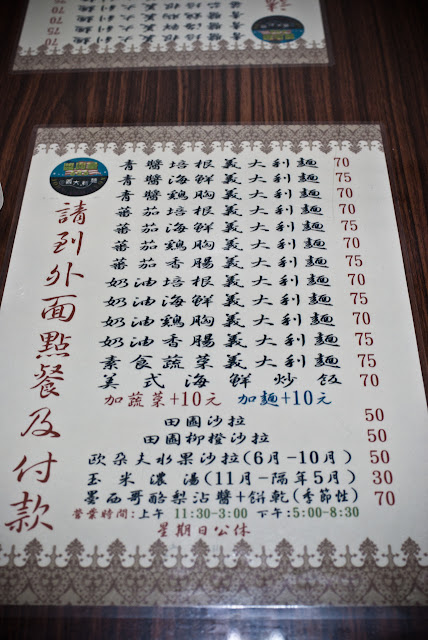 請到外面點餐及付款
義大利麵
青醬培根義大利麵 70
青醬海鮮義大利麵 75
青醬鷄胸義大利麵 70
蕃茄培根義大利麵 70
蕃茄海鮮義大利麵 75
蕃茄鷄胸義大利麵 70
蕃茄香腸義大利麵 75
奶油培根義大利麵 70
奶油海鮮義大利麵 75
奶油鷄胸義大利麵 70
奶油香腸義大利麵 75
素食蔬菜義大利麵 75
美式海鮮炒飯 70
加蔬菜+10元 加麵+10元
田園沙拉 50
田園柳橙沙拉 50
歐朵夫水果沙拉(6月-10月) 50
玉米濃湯(11月-隔年5月) 30
墨西哥酪梨沾醬+餅乾(季節性) 70
營業時間:上午 11:30-3:00 下午:5:00-8:30
星期日公休